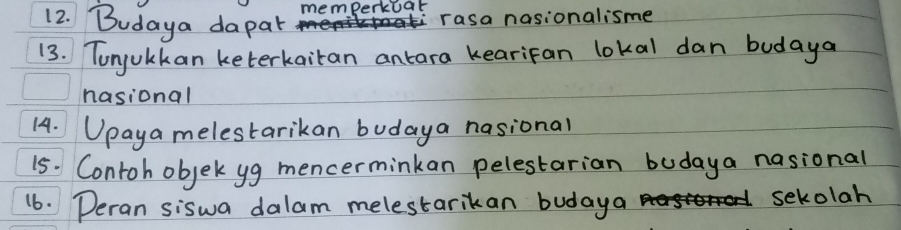 12. Budaya dapat memperkuat rasa nasionalisme
13. Tunjukkan keterkaitan antara kearifan lokal dan budaya
nasional
14. Upaya melestarikan budaya nasional
15. Contoh objek yg mencerminkan pelestarian budaya nasional
16. Peran siswa dalam melestarikan budaya sekolah